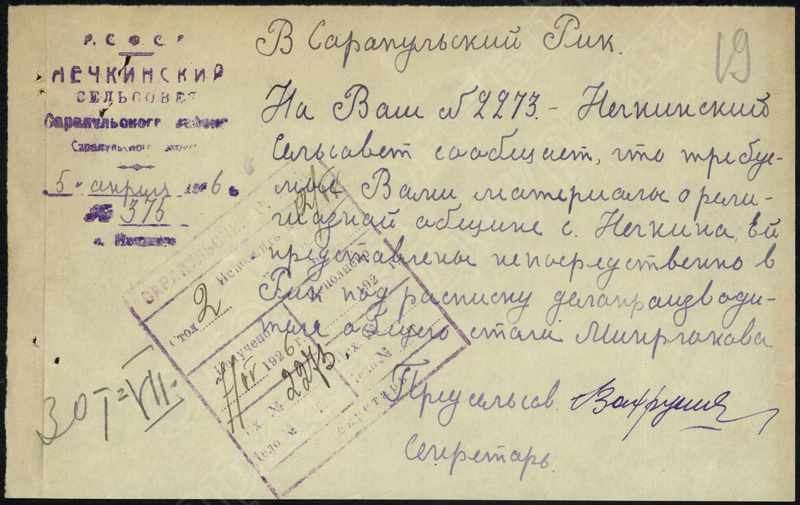 Р.С.Ф.С.Р
НЕЧКИНСКИЙ
СЕЛЬСОВЕТ
Сарапульского района
Сарапульского
5 апреля 1926
№ 375
с. Нечкино
19
В Сарапульский Рик.
На Ваш № 2273. – Нечкинский
Сельсавет сообщает, что требуе-
мые Вами материалы о рели-
гиазной абщине с. Нечкина, ей
представлены непосредственно в
Рик под расписку делапраизводи-
теле общего стала
Предсельсов. Вахрушев
Секретарь.
САРАПУЛЬСКИЙ
Стол 2
Получено
1926 г.
Вх. № 2273
Дело №
Исполнено
192 г.
Дело №
30 I-VII